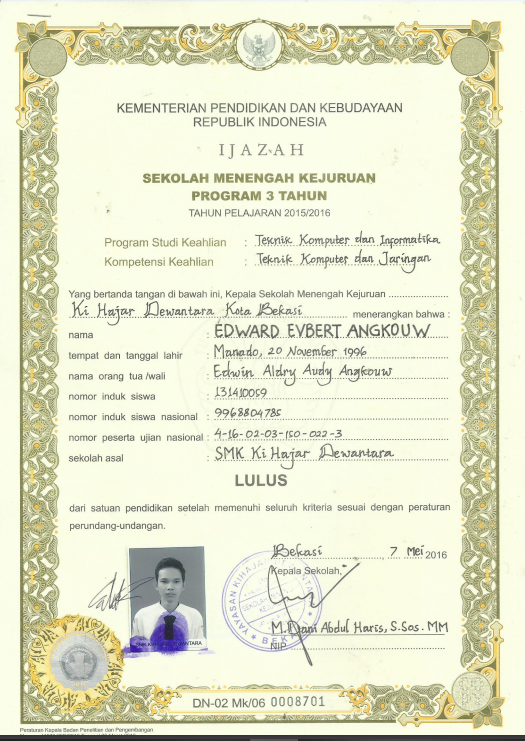 KEMENTERIAN PENDIDIKAN DAN KEBUDAYAAN
REPUBLIK INDONESIA
IJAZAH
SEKOLAH MENENGAH KEJURUAN
PROGRAM 3 TAHUN
TAHUN PELAJARAN 2015/2016
Program Studi Keahlian : Teknik Komputer dan Informatika
Kompetensi Keahlian : Teknik Komputer dan Jaringan
Yang bertanda tangan di bawah ini, Kepala Sekolah Menengah Kejuruan
Ki Hajar Dewantara Kota Bekasi menerangkan bahwa :
nama : EDWARD EVBERT ANGKOUW
tempat dan tanggal lahir : Manado, 20 November 1996
nama orang tua /wali : Edwin Aldry Audy Angkouw
nomor induk siswa : 131410059
nomor induk siswa nasional : 9968804785
nomor peserta ujian nasional : 4-16-02-03-150-022-3
sekolah asal : SMK Ki Hajar Dewantara
LULUS
dari satuan pendidikan setelah memenuhi seluruh kriteria sesuai dengan peraturan
perundang-undangan.
Bekasi, 7 Mei 2016
Kepala Sekolah,
M. Djani Abdul Haris, S.Sos. MM
NIP
DN-02 Mk/06 0008701
Peraturan Kepala Badan Penelitian dan Pengembangan